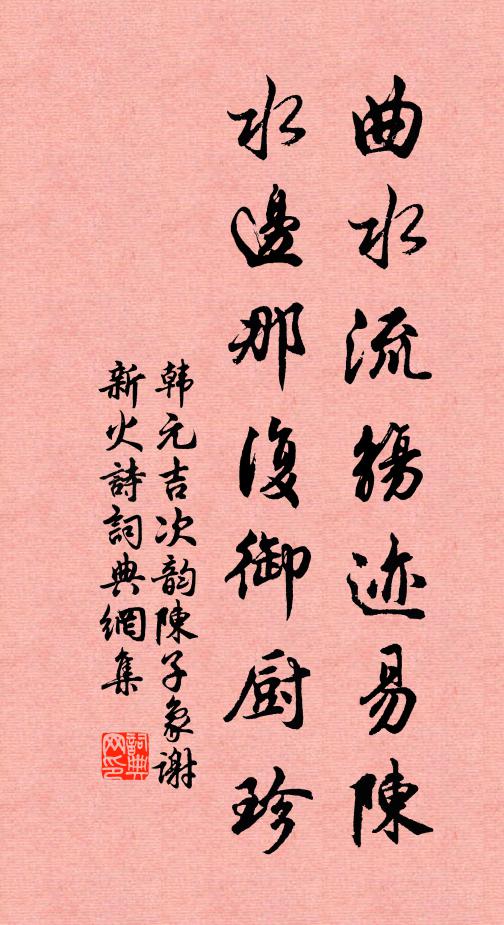 曲水流觴迹易陳
水邊那復御厨珍
韩元吉次韵陳子象謝
新火詩詞典網集
詞典网印